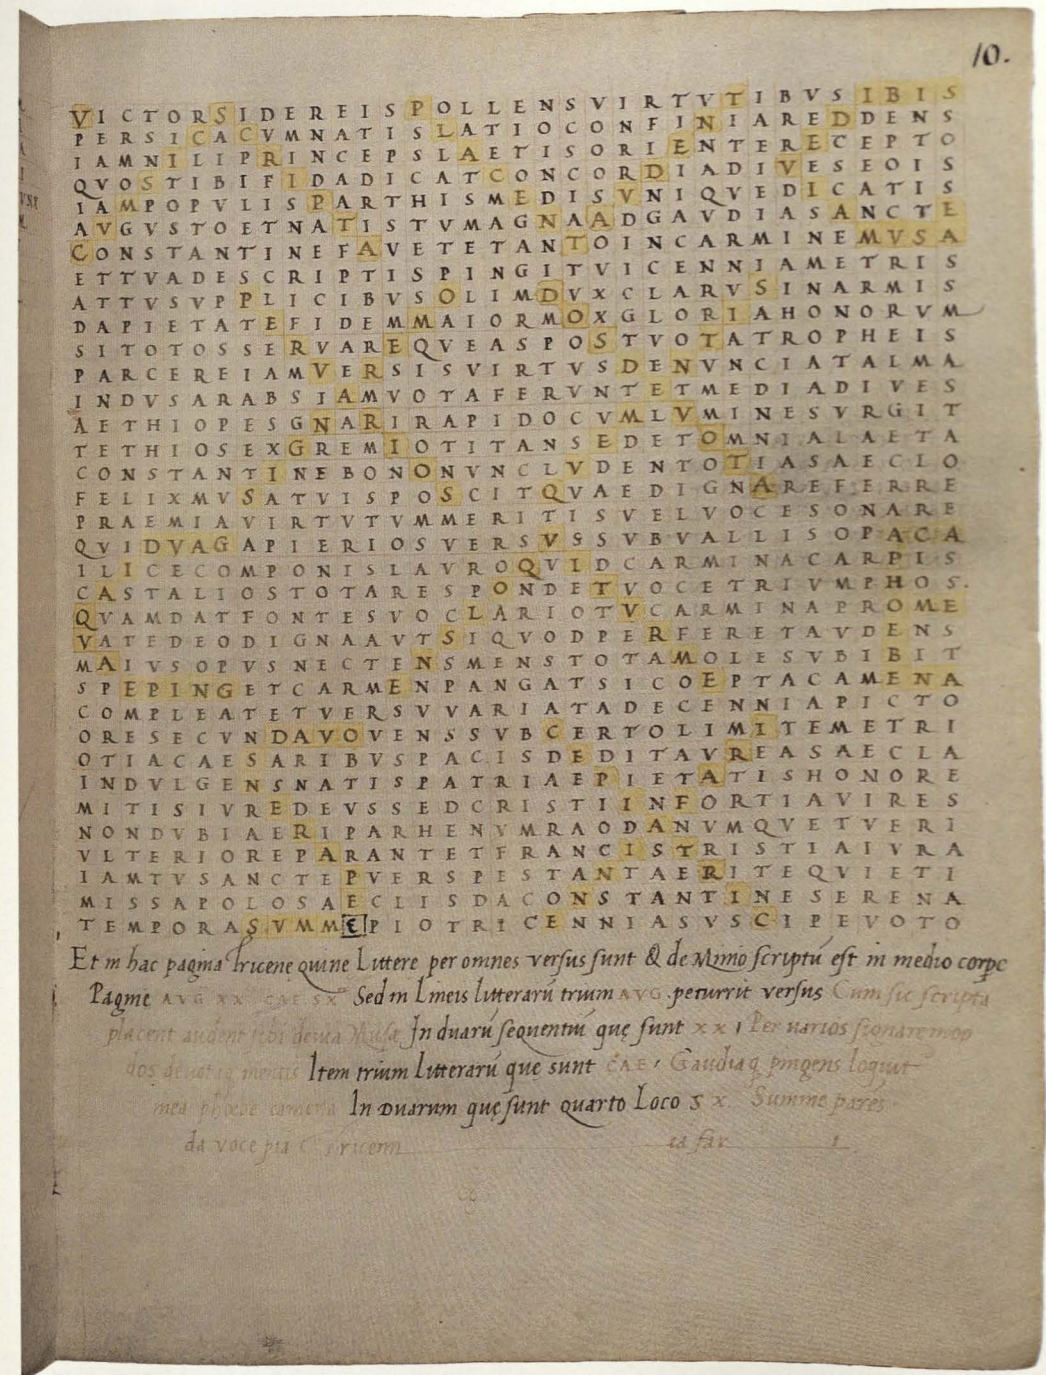 10.
VICTORSIDEREISPOLLENSVIRTVTIBVSIBIS
PERSICACVMNATISLATIOCONFINIAREDDENS
IAMNILIPRINCEPSLAETISORIENTERECEPTO
QVOSTIBIFIDADICATCONCORDIADIVESEOIS
IAMPOPVLISPARTHISMEDISVNIQVEDICATIS
AVGVSTOETNATISTVMAGNAADGAVDIASANCTE
CONSTANTINEFAVETETANTOINCARMINEMVSA
ETTVADESCRIPTISPINGITVICENNIAMETRIS
ATTVSVPPLICIBVSOLIMDVXCLARVSINARMIS
DAPIETATEFIDEMMAIORMOXGLORIAHONORVM
SITOTOSSERVAREQVEASPOSTVOTATROPHEIS
PARCEREIAMVERSISVIRTVSDENVNCIATALMA
INDVSARABSIAMVOTAFERVNTETMEDIADIVES
AETHIOPESGNARIRAPIDOCVMLVMINESVRGIT
TETHIOSEXGREMIOTITANSEDETOMNIALAETA
CONSTANTINEBONONVNCLVDENTOTIASAECLO
FELIXMVSATVISPOSCITQVAEDIGNAREFERRE
PRAEMIAVIRTVTVMMERITISVELVOCESONARE
QVIDVAGAPIERIOSVERSVSSVBVALLISOPACA
ILICECOMPONISLAVROQVIDCARMINACARPIS
CASTALIOSTOTARESPONDETVOCETRIVMPHOS.
QVAMDATFONTESVOCLARIOTVCARMINAPROME
VATEDEODIGNAAVTSIQVODPERFERETAVDENS
MAIVSOPVSNECTENSMENSTOTAMOLESVBIBIT
SPEPINGETCARMENPANGATSICOEPTACAMENA
COMPLEATETVERSVVARIATADECENNIAPICTO
ORESECVNDAVOVENSSVBCERTOLIMITEMETRI
OTIACAESARIBVSPACISDEDITAVREASAECLA
INDVLGENSNATISPATRIAEPIETATISHONORE
MITISIVREDEVSSEDCRISTIINFORTIAVIRES
NONDVBIAERIPARHENVMRAODANVMQVETVERI
VLTERIOREPARANTETFRANCISTRISTIAIVRA
IAMTVSANCTEPVERSPESTANTAERITEQVIETI
MISSAPOLOSAECLISDACONSTANTINESERENA
TEMPORASVMMEPIOTRICENNIASVSCIPEVOTO
Et in hac pagina Tricene quine Littere per omnes versus sunt & de Minio scriptū est in medio corpe
Pagine AVG XX CAE SX Sed in Lineis litterarū trium AVG peturrit versus Cum sic scripta
placent audent tibi devea Musae In duarū sequentiū que sunt xx Per varios signare mo
dos devotiq mentis Item trium Litterarū que sunt CAE Gaudia q pingens loqiut
mea phoebe camena In Duarum quę sunt quarto Loco s x Summe pares
da voce pia